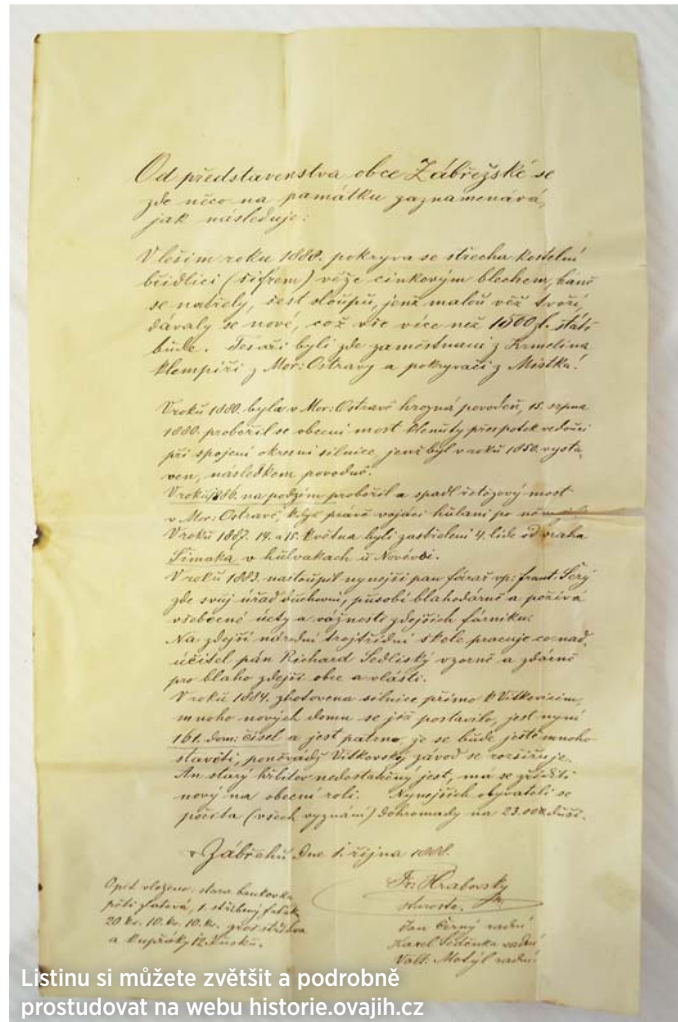 Od představenstva obce Zábřežské se
zde něco na památku zaznamenává,
jak následuje:
V leším roku 1888. pokryva se střecha kostelní
břidlicí (šifrem) věže cinkovým blechem, báně
se natřely, šest sloupů, jenž malou věž tvoří,
dávaly se nové, což vše více než 1500 zl. státi
bude. Tesaři byli zde zaměstnani z Krmelína
klempíři z Mor: Ostravy a pokryvači z Místka!
V roku 1880. byla v Mor: Ostravě hrozná povodeň, 15. srpna
1880. probořil se obecní most klenutý přes potok vedoucí
při spojení okresní silnice, jenž byl v roku 1850. vysta-
ven, následkem povodně.
V roku 1886. na podzim probořil a spadl řetězový most
v Mor: Ostravě, když právě vojáci hůlani po něm
V roku 1887. 14. a 15. května byli zastřelení 4. lide od vraha
Šimaka v hůlvakach u Nové vsi.
V roku 1883. nastoupil nynejší pan fárař vp: frant: Šerý
zde svůj úřad důchovní, působí blahodárně a požívá
všeobecné úcty a vážnosti zdejších fárníku.
Na zdejší národní trojtřídní škole pracuje co nad-
učitel pán Richard Sedliský vzorně a zdárně
pro blaho zdejší obce a vlásti.
V roku 1884. zhotovena silnice přímo k Vítkovicím,
mnoho nových domu se již postavilo, jest nyní
161. dom: čísel a jest patrno, že se bude ještě mnoho
stavěti, poněvadž Vítkovský závod se rozšiřuje.
An starý hřbitov nedostatečný jest, má se zříditi
nový na obecní roli. Nynejších obyvatelů se
počíta (všech vyznání) dohromady na duší.
v Zábřehů dne 1. října 1888.
Opět vloženo: stara bankovka
pěti zlatová, 1. stříbrný zlatník
20 kr. 10. kr. 10. kr.
a kupráky 12. kusků.
Fr: Hrabovský
starosta.
Jan Černý radní
Karel Seděnka radní
Valt. Motýl radní.
Listinu si můžete zvětšit a podrobně
prostudovat na webu historie.ovajih.cz